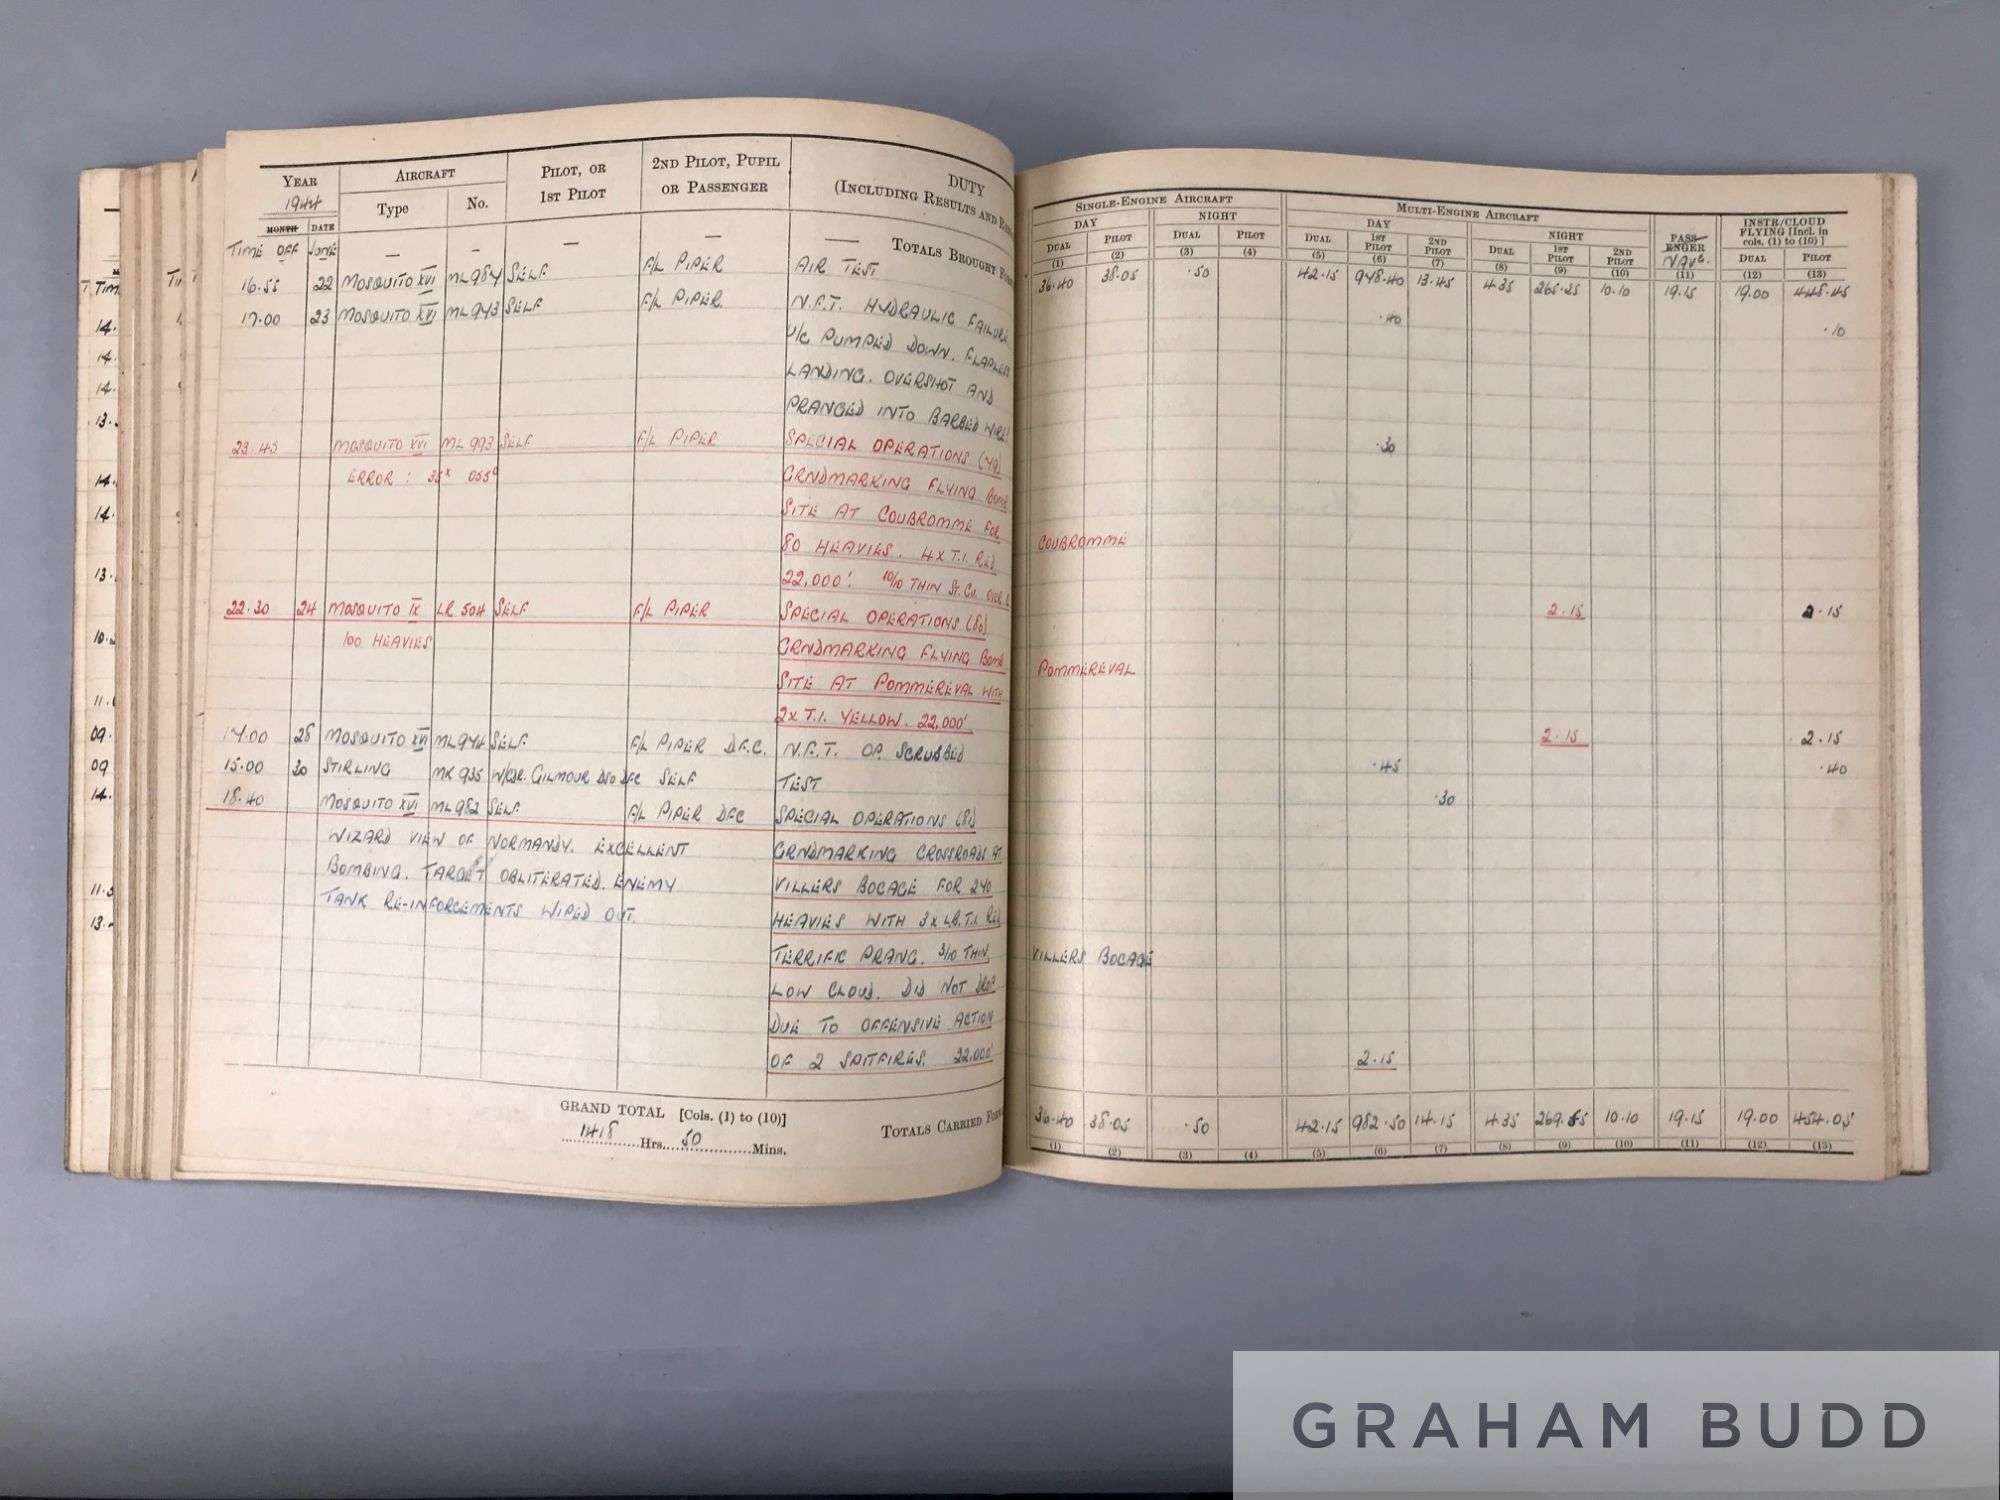 YEAR AIRCRAFT PILOT, OR 2ND PILOT, PUPIL DUTY
1944 Type No. 1ST PILOT OR PASSENGER (INCLUDING RESULTS AND
MONTH DATE
TIME OFF JUNE — — — — — TOTALS BROUGHT
16.55 22 MOSQUITO XVI ML 984 SELF F/L PIPER AIR TEST
17.00 23 MOSQUITO XVI ML 943 SELF F/L PIPER N.F.T. HYDRAULIC FAILURE
U/C PUMPED DOWN. FLAPLESS
LANDING. OVERSHOT AND
PRANGED INTO BARBED WIRE
23.45 MOSQUITO XVI ML 993 SELF F/L PIPER SPECIAL OPERATIONS (49)
ERROR : 35x 055° GRNDMARKING FLYING BOMB
SITE AT COUBROMME FOR
80 HEAVIES. 4 X T.I. RED
22,000'. 10/10 THIN ST. CU. OVER
22.30 24 MOSQUITO IX LR 504 SELF F/L PIPER SPECIAL OPERATIONS (50)
100 HEAVIES GRNDMARKING FLYING BOMB
SITE AT POMMEREVAL WITH
2X T.I. YELLOW. 22,000'
14.00 28 MOSQUITO XVI ML 944 SELF F/L PIPER D.F.C. N.F.T. OP. SCRUBBED
15.00 30 STIRLING MK 935 W/CDR. GILMOUR DSO DFC SELF TEST
18.40 MOSQUITO XVI ML 982 SELF F/L PIPER DFC SPECIAL OPERATIONS (51)
WIZARD VIEW OF NORMANDY. EXCELLENT GRNDMARKING CROSSROADS AT
BOMBING. TARGET OBLITERATED. ENEMY VILLERS BOCAGE FOR 240
TANK RE-INFORCEMENTS WIPED OUT. HEAVIES WITH 3 X L.B. T.I. RED
TERRIFIC PRANG. 3/10 THIN
LOW CLOUD. DID NOT DROP
DUE TO OFFENSIVE ACTION
OF 2 SPITFIRES. 22,000'
GRAND TOTAL [Cols. (1) to (10)]
1418 Hrs. 50 Mins.
TOTALS CARRIED
SINGLE-ENGINE AIRCRAFT MULTI-ENGINE AIRCRAFT PASSENGER INSTR/CLOUD FLYING [Incl. in cols. (1) to (10)]
DAY NIGHT DAY NIGHT NAVG.
DUAL PILOT DUAL PILOT DUAL 1ST PILOT 2ND PILOT DUAL 1ST PILOT 2ND PILOT DUAL PILOT
(1) (2) (3) (4) (5) (6) (7) (8) (9) (10) (11) (12) (13)
36.40 38.05 .50 42.15 948.40 13.45 4.35 265.25 10.10 19.15 19.00 448.45
.40 .10
.30
COUBROMME
2.15 2.15
POMMEREVAL
2.15 2.15
.45 .40
.30
VILLERS BOCAGE
2.15
36.40 38.05 .50 42.15 982.50 14.15 4.35 10.10 19.15 19.00 454.05
(1) (2) (3) (4) (5) (6) (7) (8) (9) (10) (11) (12) (13)
T. TIM
14.
14.
14.
13.
14.
14.
13.
10.
11.
09.
09
14.
11.
13.
GRAHAM BUDD